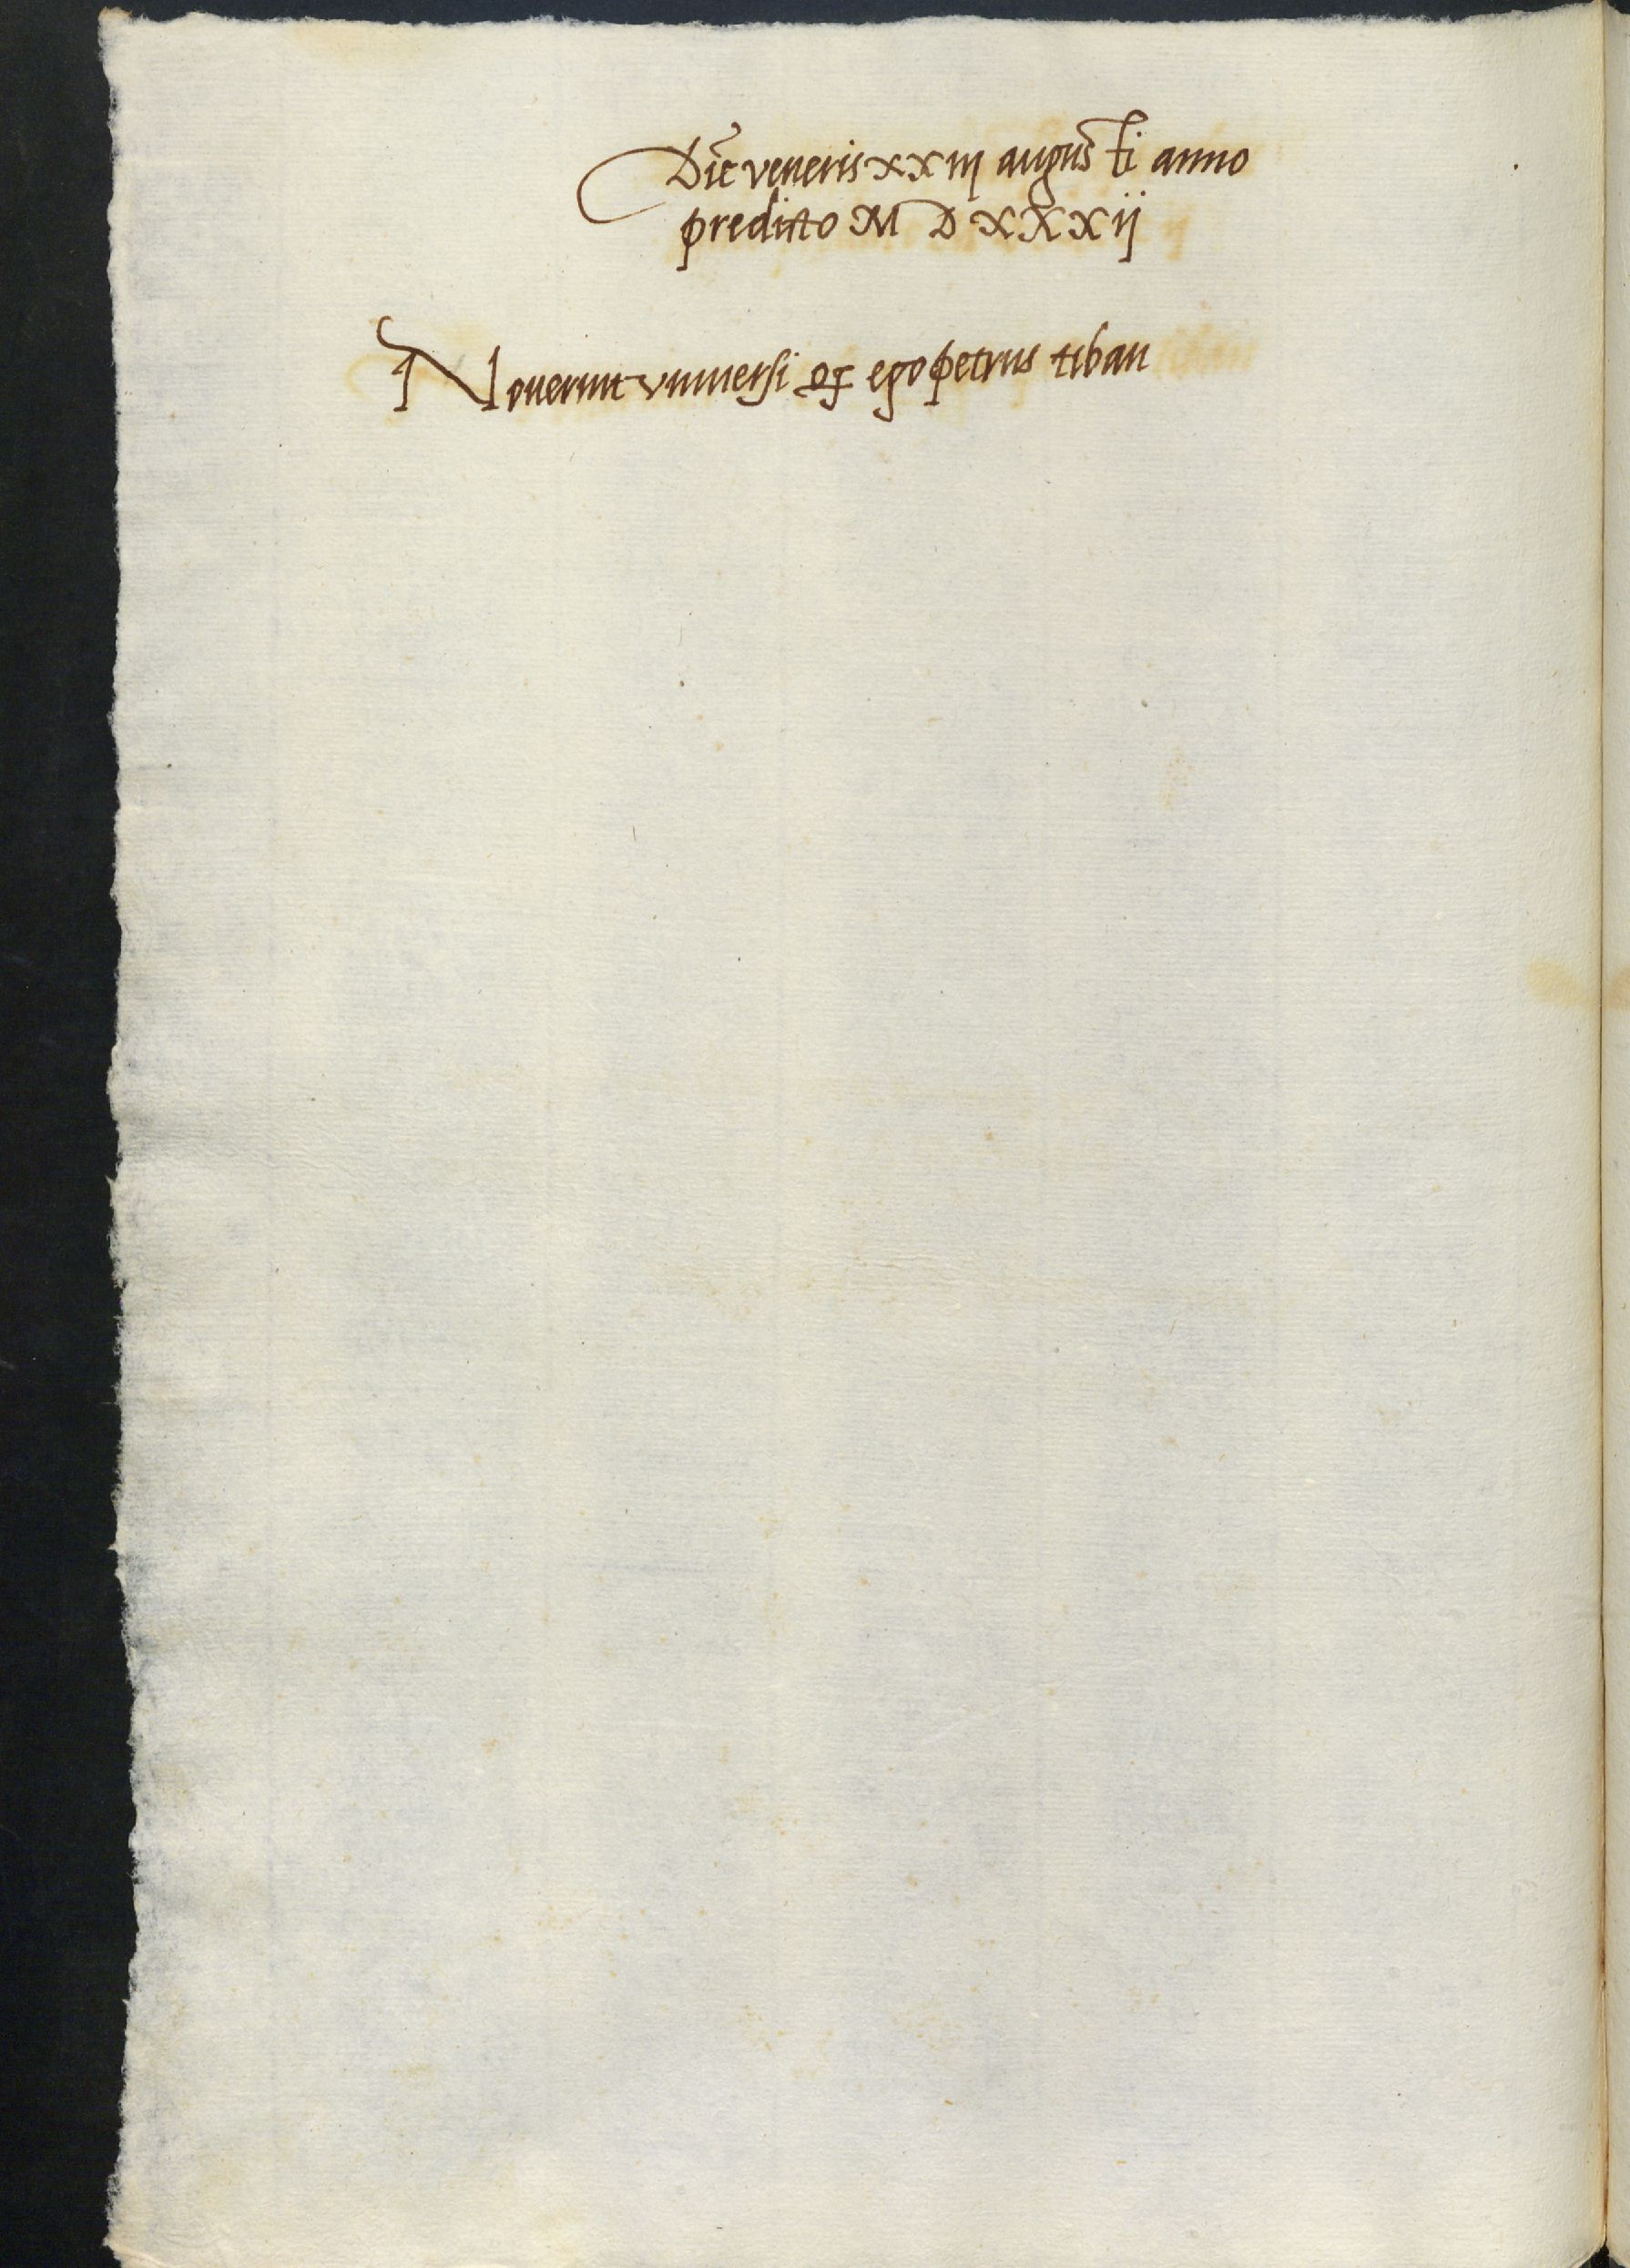 Die veneris xxiij augusti anno
predicto M D xxxij
Noverint universi q̃ ego petrus tibau